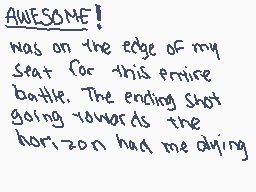 AWESOME!
was on the edge of my
seat for this entire
battle. The ending shot
going towards the
horizon had me dying